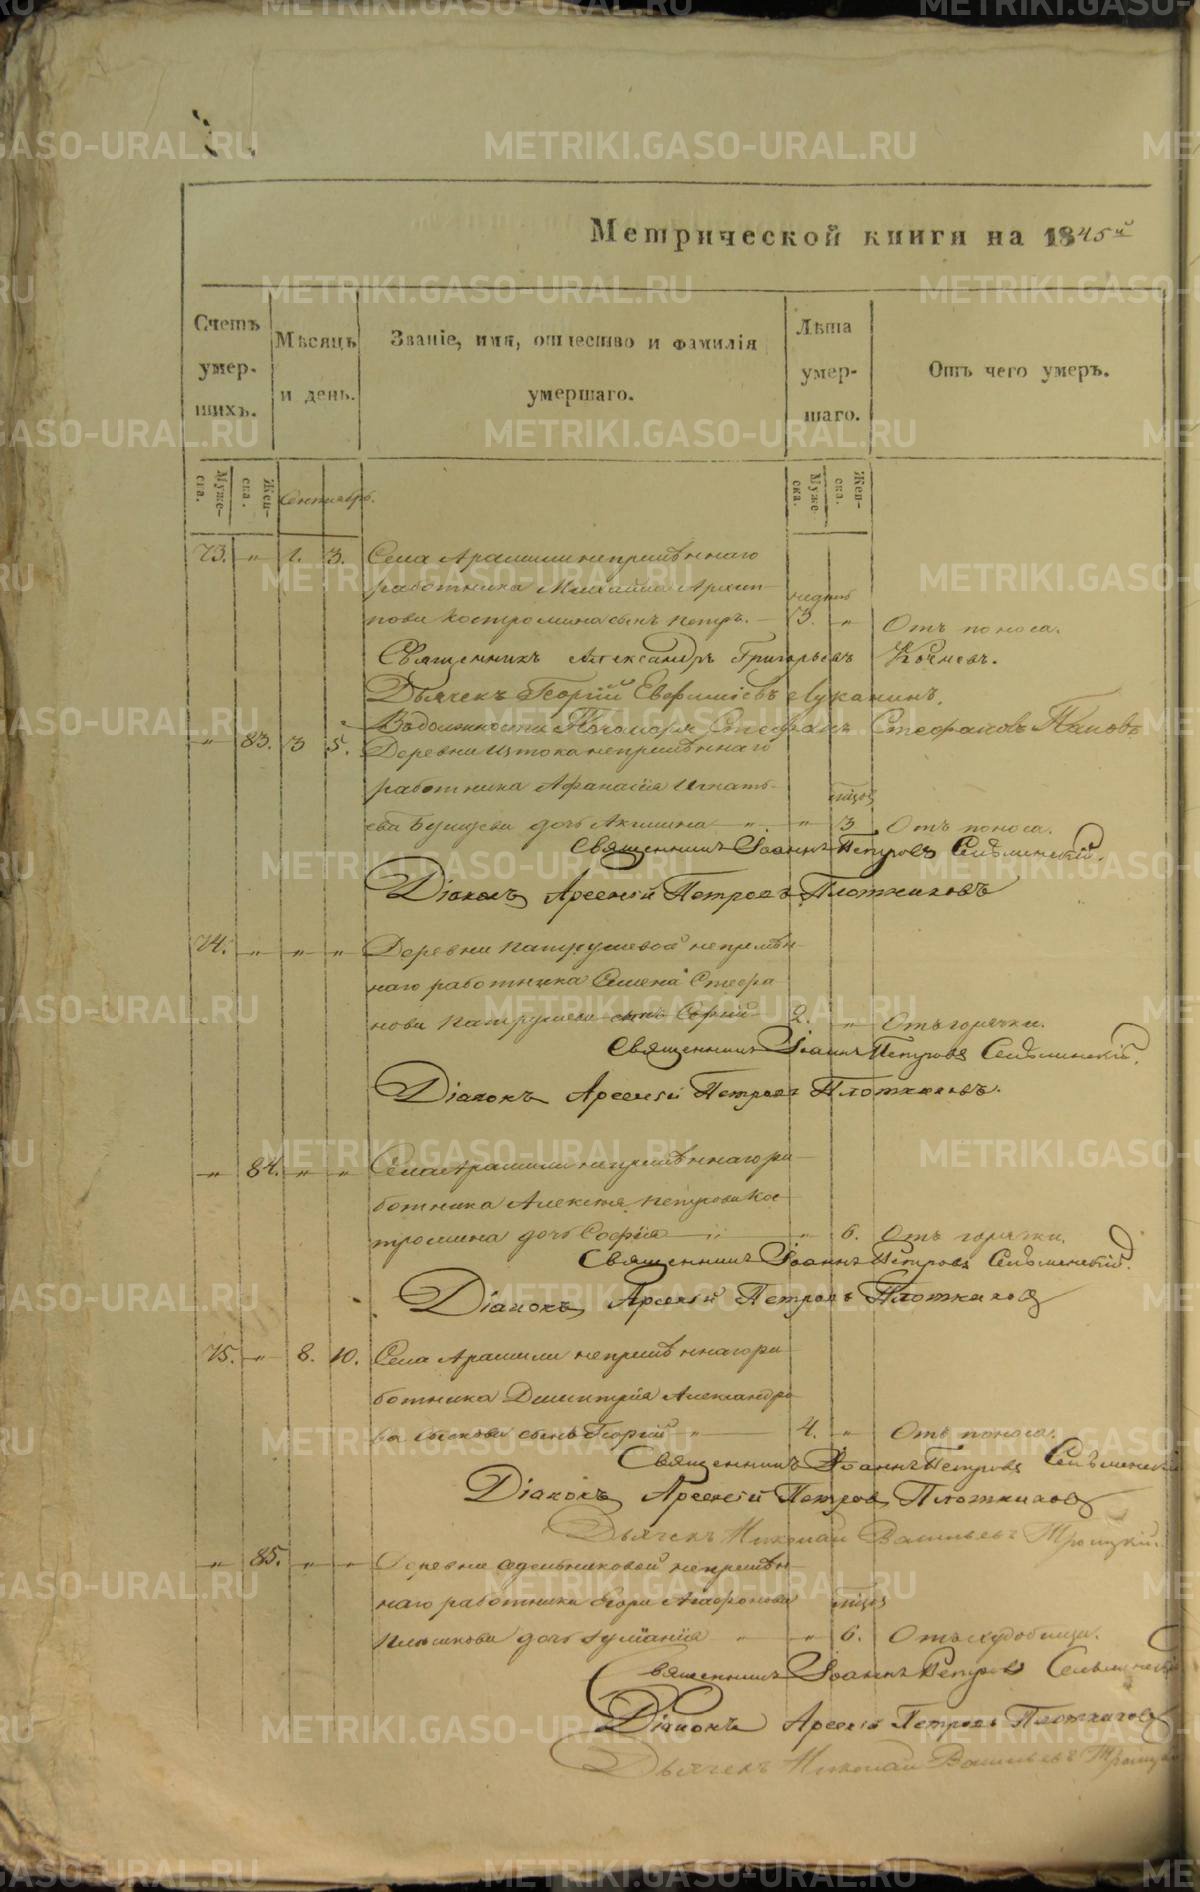 Метрической книги на 1845й
Счетъ умер-шихъ.
Мѣсяцъ и день.
Званіе, имя, отчество и фамилія умершаго.
Лѣта умер-шаго.
Отъ чего умеръ.
Муже-ска.
Жен-ска.
Сентябрь.
Муже-ска.
Жен-ска.
73. " 1. 3. Села Арамили непремѣннаго
работника Михаила Архип-
пова Костромина сынъ Петръ. недѣль 3. " Отъ поноса.
Священникъ Александръ Григорьевъ Кочневъ.
Дьячекъ Георгій Евфиміевъ Луканинъ.
Въ должности Пономаря Стефанъ Стефановъ Поповъ
" 83. 3 5. Деревни Истока непремѣннаго
работника Афанасія Игнать-
ева дочь Акилина " " мѣсяц 3 Отъ поноса.
Священникъ Іоаннъ Петровъ Сельменскій.
Діаконъ Арсеній Петровъ Плотниковъ
74. " " " Деревни Патрушевой непремѣн-
наго работника Семена Стефа
нова Патрушева сынъ 2. " Отъ горячки.
Священникъ Іоаннъ Петровъ Сельменскій.
Діаконъ Арсеній Петровъ Плотниковъ.
" 84. " " Села Арамили непремѣннаго ра
ботника Алексѣя Петрова Кос
тромина дочь Софія " " 6. Отъ горячки.
Священникъ Іоаннъ Петровъ Сельменскій.
Діаконъ Арсеній Петровъ Плотниковъ
75. " 8. 10. Села Арамили непремѣннаго ра
ботника Димитрія Александро
ва сынъ Георгій " 4. " Отъ поноса.
Священникъ Іоаннъ Петровъ Сельменскій
Діаконъ Арсеній Петровъ Плотниковъ
Дьячекъ Николай Васильевъ Троицкій.
" 85. " " Деревни непремѣн-
наго работника Егора мѣсяц
дочь " " 6. Отъ
Священникъ Іоаннъ Петровъ Сельменскій
Діаконъ Арсеній Петровъ Плотниковъ
Дьячекъ Николай Васильевъ Троицкій
METRIKI.GASO-URAL.RU